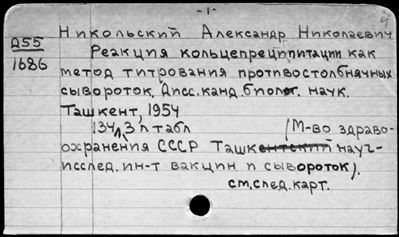 -1-
4
Никольский Александр Николаевич
Д55
1686
Реакция кольцепреципитации как
метод титрования противостолбнячных
сывороток. Дисс. канд. биолог. наук.
Ташкент, 1954
134, 3 л табл (М-во здраво-
охранения СССР Ташкентский науч-
исслед. ин-т вакцин и сывороток).
см. след. карт.